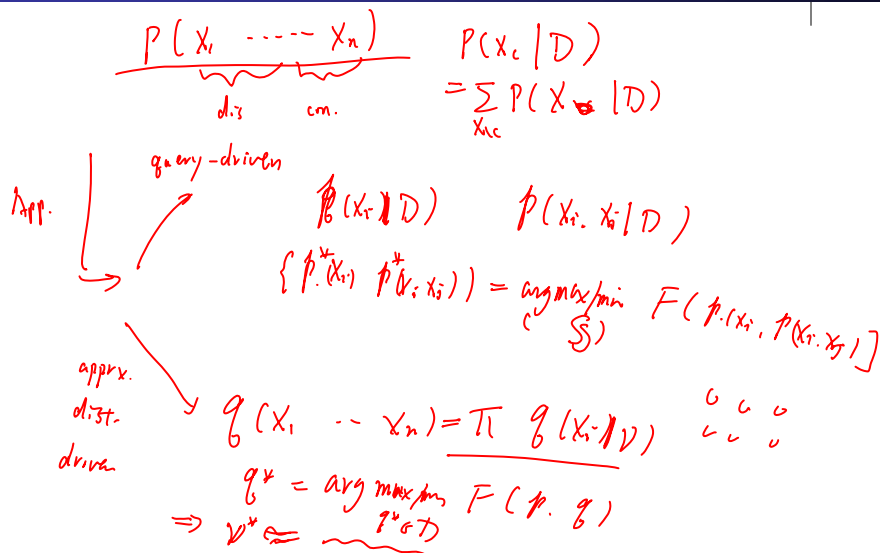 P(X₁ ······ Xₙ)
dis con.
P(X_c | D)
= Σ P(X | D)
X\c
query-driven
App.
p(Xᵢ | D) p(Xᵢ, Xⱼ | D)
{p*(Xᵢ) p*(Xᵢ Xⱼ)} = argmax/min F(p(Xᵢ, p(Xᵢ, Xⱼ)]
apprx.
dist.
driven
q(X₁ -- Xₙ) = Π q(Xᵢ | ν)
q* = argmax/min F(p, q)
⇒ ν* ≈